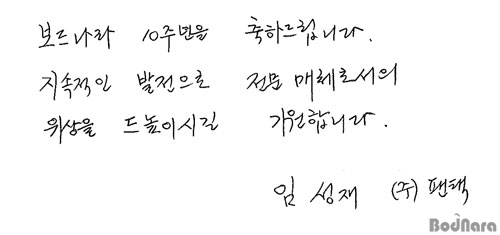 보드나라 10주년을 축하드립니다.
지속적인 발전으로 전문 매체로서의
위상을 드높이시길 기원합니다.
임 성재 (주) 팬택
BodNara